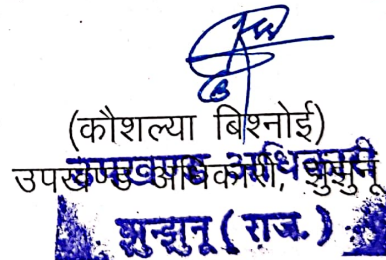 (कौशल्या बिश्नोई)
उपखण्ड अधिकारी, झुंझुनू
उपखण्ड अधिकारी
झुन्झुनू ( राज. )